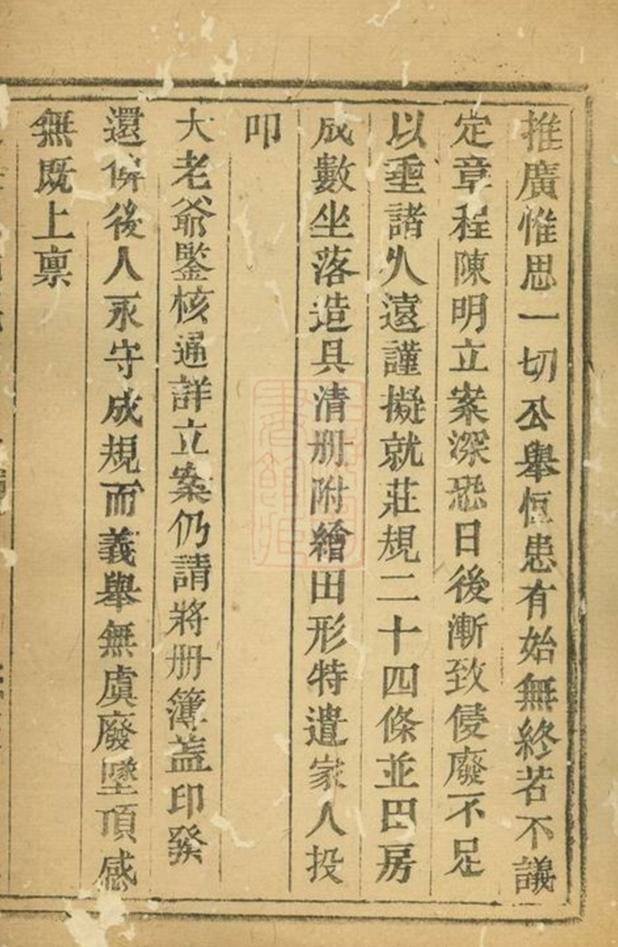 推廣惟思一切公舉恒患有始無終若不議
定章程陳明立案深恐日後漸致侵廢不足
以垂諸久遠謹擬就莊規二十四條並田房
成數坐落造具清册附繪田形特遣家人投
叩
大老爺鑒核通詳立案仍請將册簿蓋印發
還俾後人永守成規而義舉無虞廢墜頂感
無既上稟